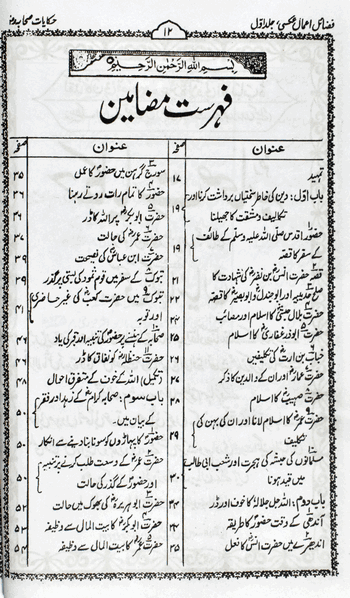 فضائل اعمال عکسی، جلد اول
۱۲
حکایات صحابہ
بسم اللہ الرحمٰن الرحیم
فہرست مضامین
عنوان صفحہ
تمہید ۱۷
باب اول: دین کی خاطر سختیاں برداشت کرنا اور
تکالیف و مشقت کا جھیلنا ۱۹
حضور اقدس صلی اللہ علیہ وسلم کے طائف
کے سفر کا قصہ ۱۹
قصہ حضرت انس بن نضرؓ کی شہادت کا ۲۱
صلح حدیبیہ اور ابوجندلؓ و ابوبصیرؓ کا قصہ ۲۲
حضرت بلال حبشیؓ کا اسلام اور مصائب ۲۴
حضرت ابوذر غفاریؓ کا اسلام ۲۵
خباب بن الارتؓ کی تکلیفیں ۲۶
حضرت عمارؓ اور ان کے والدین کا ذکر ۲۷
حضرت صہیبؓ کا اسلام ۲۸
حضرت عمرؓ کا اسلام لانا اور ان کی بہن کی
تکلیف ۲۹
مسلمانوں کی حبشہ کی ہجرت اور شعب ابی طالب
میں قید ہونا ۳۰
باب دوم: اللہ جل جلالہ کا خوف اور ڈر ۳۴
آندھی کے وقت حضورؐ کا طریقہ ۳۴
اندھیرے میں حضرت انسؓ کا فعل ۳۵
عنوان صفحہ
سورج گرہن میں حضورؐ کا عمل ۳۵
حضورؐ کا تمام رات روتے رہنا ۳۶
حضرت ابوبکرؓ پر اللہ کا ڈر ۳۶
حضرت عمرؓ کی حالت ۳۷
حضرت ابن عباسؓ کی نصیحت ۳۹
تبوک کے سفر میں قوم ثمود کی بستی پر گذر ۴۰
تبوک میں حضرت کعبؓ کی غیر حاضری
اور توبہ ۴۱
صحابہؓ کے ہنسنے پر حضورؐ کی تنبیہ اور قبر کی یاد ۴۶
حضرت حنظلہؓ کو نفاق کا ڈر ۴۶
(تکمیل) اللہ کے خوف کے متفرق احوال ۴۸
باب سوم: صحابہ کرامؓ کے زہد اور فقر
کے بیان میں۔ ۵۰
حضورؐ کا پہاڑوں کو سونا بنا دینے سے انکار ۵۰
حضرت عمرؓ کے وسعت طلب کرنے پر تنبیہ
اور حضورؐ کے گذر کی حالت ۵۰
حضرت ابوہریرہؓ کی بھوک میں حالت ۵۲
حضرت ابوبکرؓ کا بیت المال سے وظیفہ ۵۳
حضرت عمرؓ کا بیت المال سے وظیفہ ۵۴